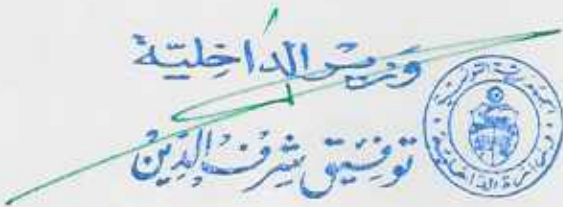 وزير الداخلية
توفيق شرف الدين
الجمهورية التونسية
وزارة الداخلية